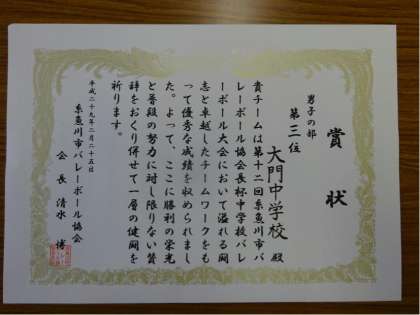 賞状
男子の部
第三位
大門中学校 殿
貴チームは第十二回糸魚川市バ
レーボール協会長杯中学校バレ
ーボール大会において溢れる闘
志と卓越したチームワークをも
って優秀な成績を収められまし
た。よって、ここに勝利の栄光
と普段の努力に対し限りない賛
辞をおくり併せて一層の健闘を
祈ります。
平成二十九年二月二十五日
糸魚川市バレーボール協会
会長 清水 博